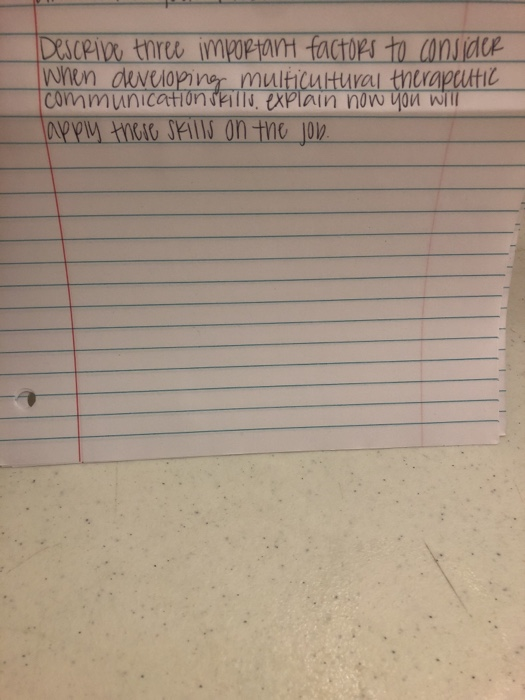 Describe three important factors to consider
when developing multicultural therapeutic
communication skills. explain how you will
apply these skills on the job.